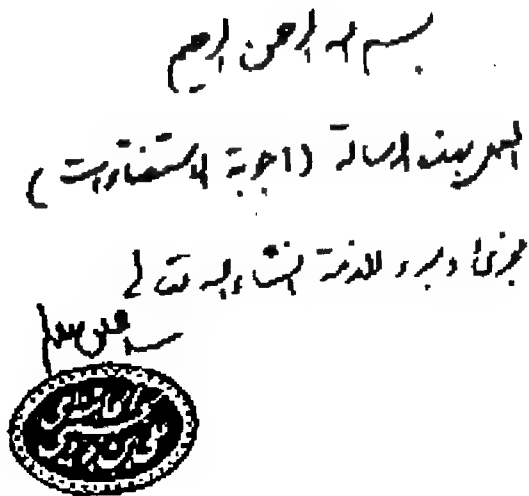 بسم الله الرحمن الرحيم
العمل بهذه الرسالة (اجوبة الاستفتاءات)
مجزئ و مبرء للذمة انشاء الله تعالى